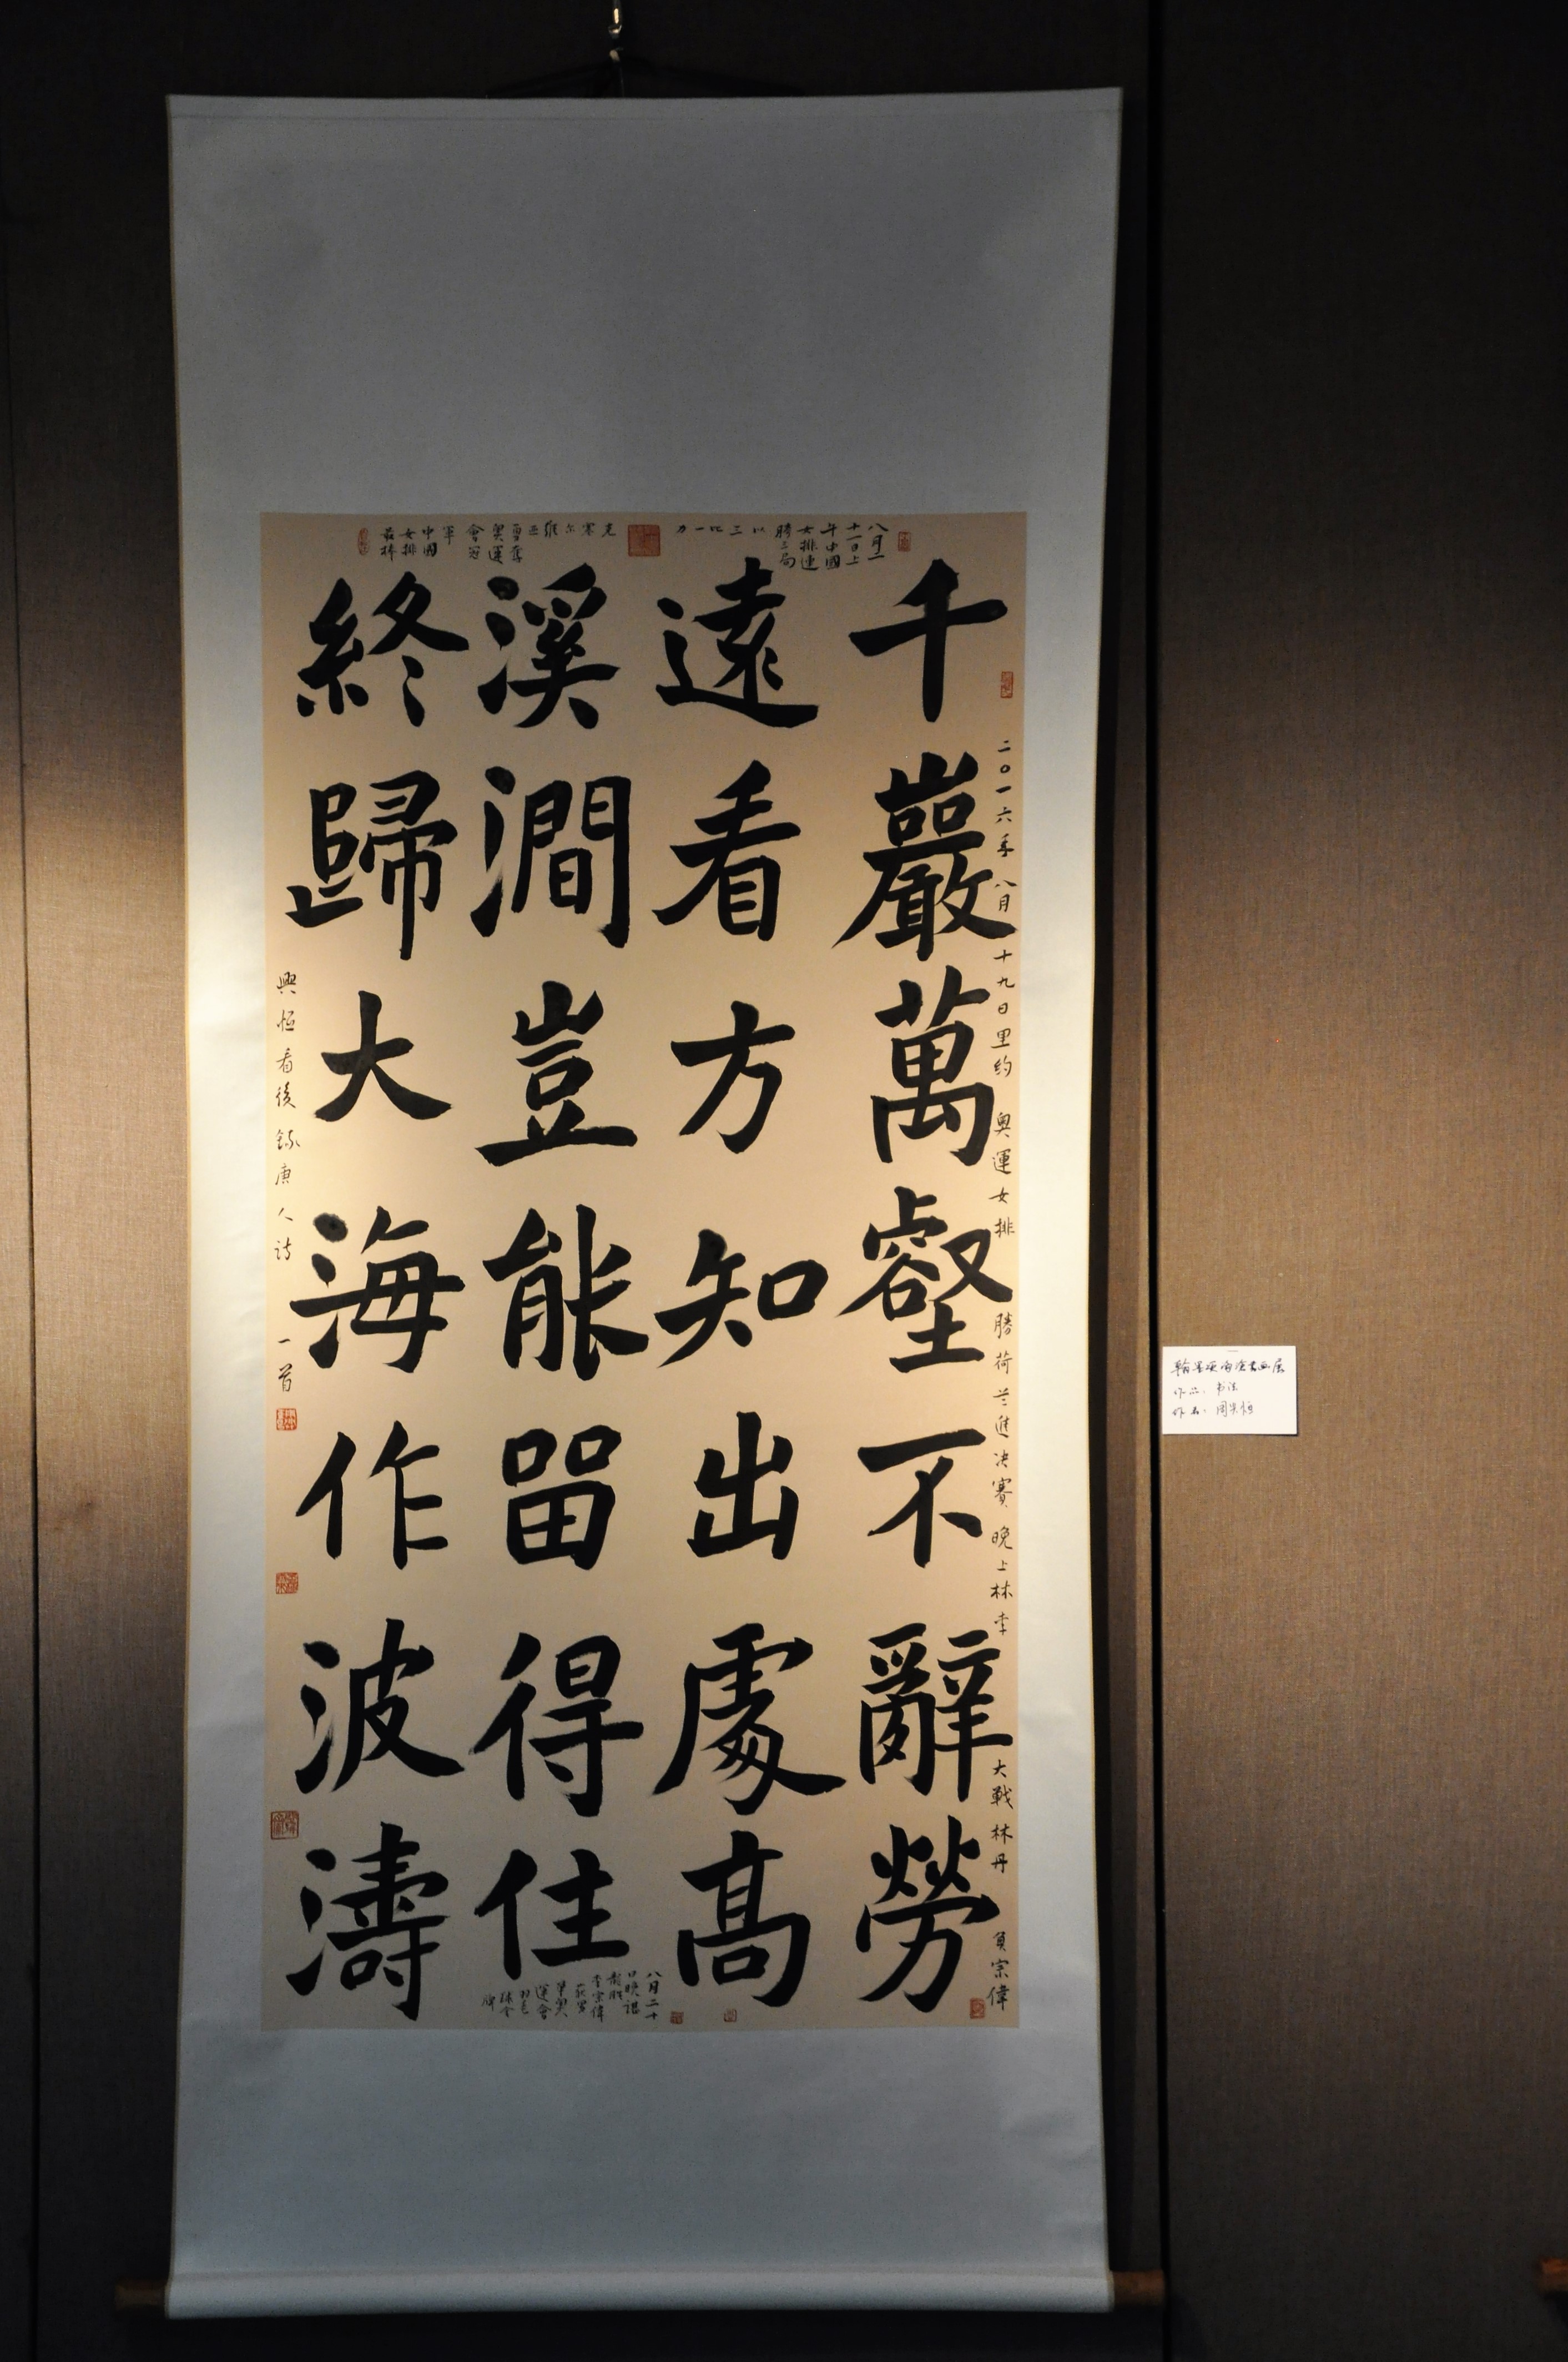 千巖萬壑不辭勞
遠看方知出處高
溪澗豈能留得住
終歸大海作波濤
二〇一六年八月十九日里約奧運女排勝荷兰進决賽晚上林李大戰林丹負宗偉
八月二
十一日上
午中國
女排連
勝三局
以
三
比
一
力
克
塞
尔
維
亚
勇奪
奧運
會冠
軍
中國
女排
最棒
興恒看後錄唐人诗一首
八月二十
日晚諶
龍胜
李宗偉
获男
單奧
運會
羽毛
球金
牌
作品：书法
作者：周兴恒